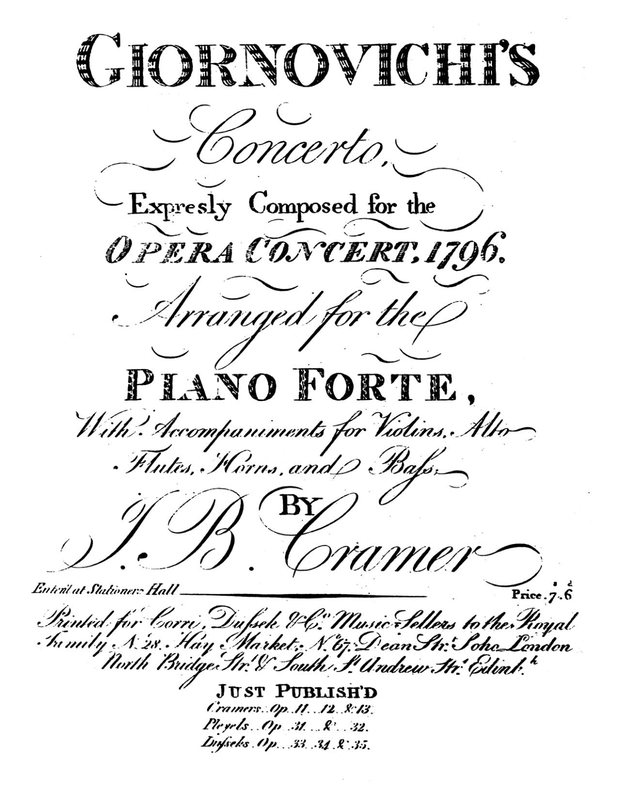 GIORNOVICHI'S
Concerto,
Expresly Composed for the
OPERA CONCERT, 1796.
Arranged for the
PIANO FORTE,
With Accompaniments for Violins, Alto
Flutes, Horns, and Baſs,
BY
J. B. Cramer
Enter'd at Stationers Hall Price 7s 6d
Printed for Corri, Duſsek & Co. Music Sellers to the Royal
Family No. 28. Hay Market, No. 67, Dean Str.t Soho London
North Bridge Str.t & South St. Andrew Str.t Edinb.h
JUST PUBLISH'D
Cramers Op. 11 .. 12. & 13.
Pleyels Op 31 .. & .. 32.
Duſseks Op .. 33 .. 34 & 35.